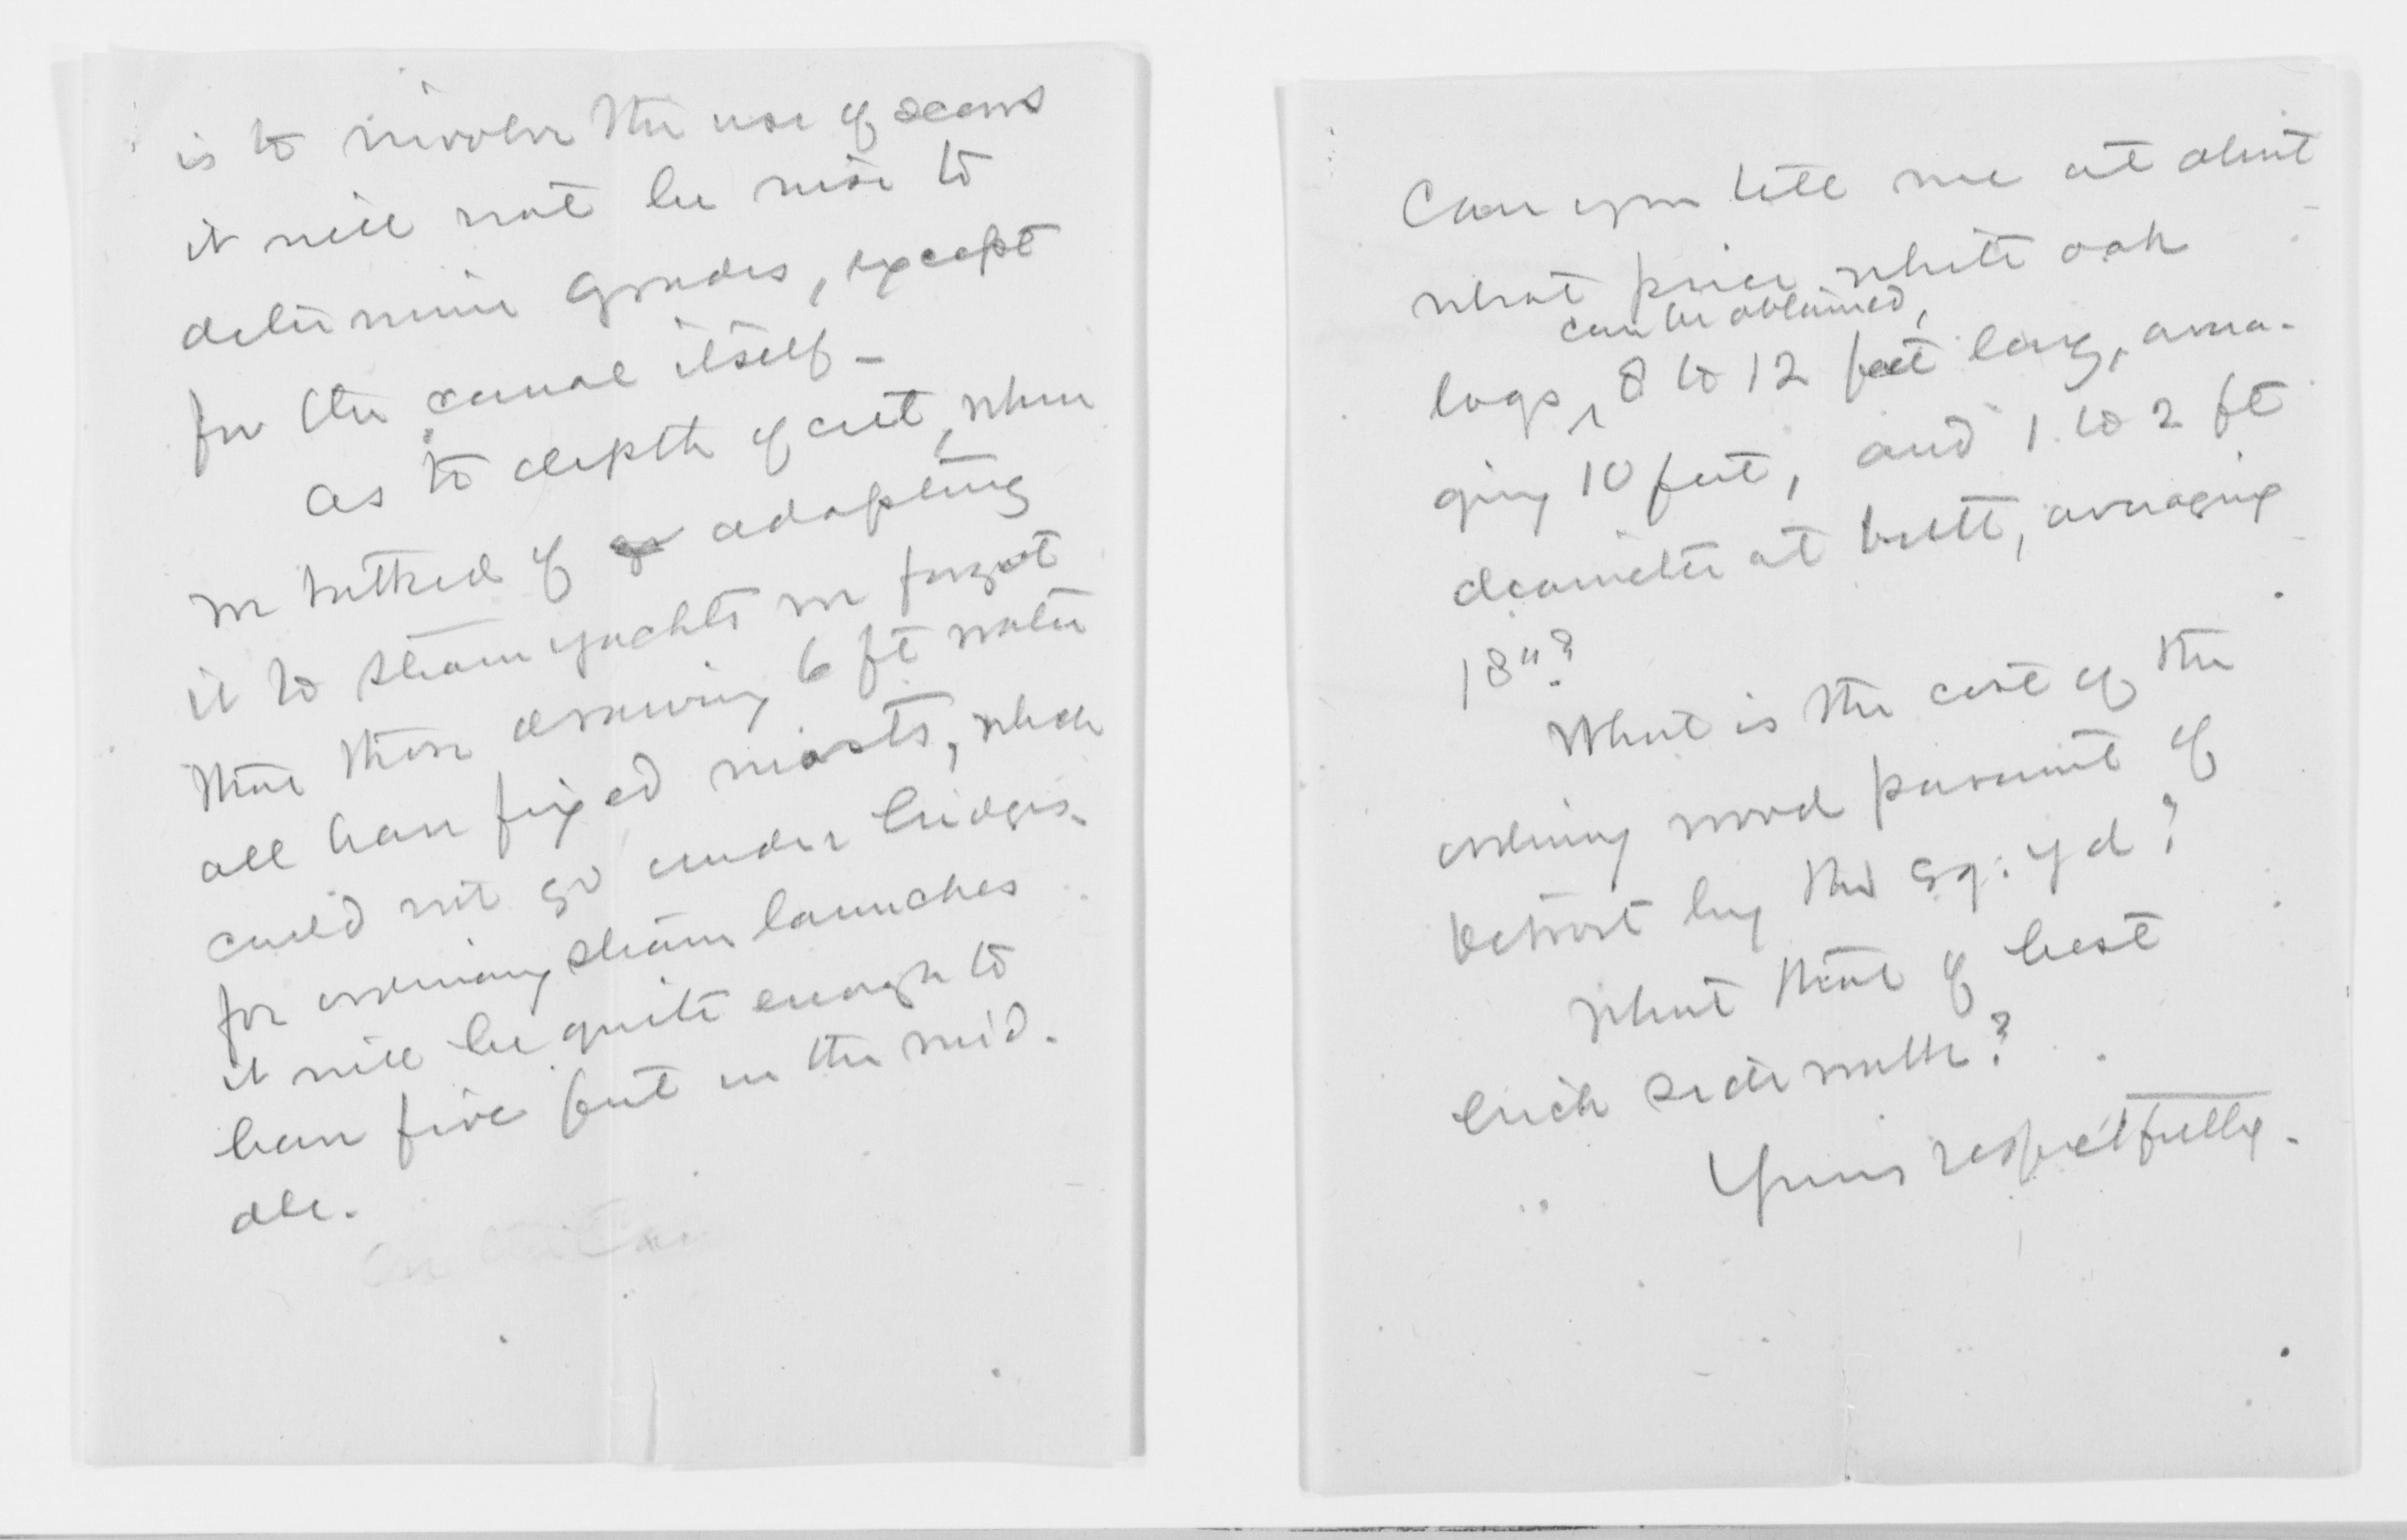 is to involve the use of scows
it will not be wise to
determine grades, except
for the canal itself -
As to depth of cut, when
we talked of adapting
it to steam yachts we forgot
that those drawing 6 ft water
all have fixed masts, which
could not go under bridges.
for ordinary steam launches
it will be quite enough to
have five feet in the mid-
dle.
Can you tell me at about
what price white oak
can be obtained,
logs, 8 to 12 feet long, avera-
ging 10 feet, and 1 to 2 ft
diameter at butt, averaging
18"?
What is the cost of the
ordinary wood pavement of
Detroit by the sq: yd?
What that of best
brick sidewalk?
Yours respectfully.